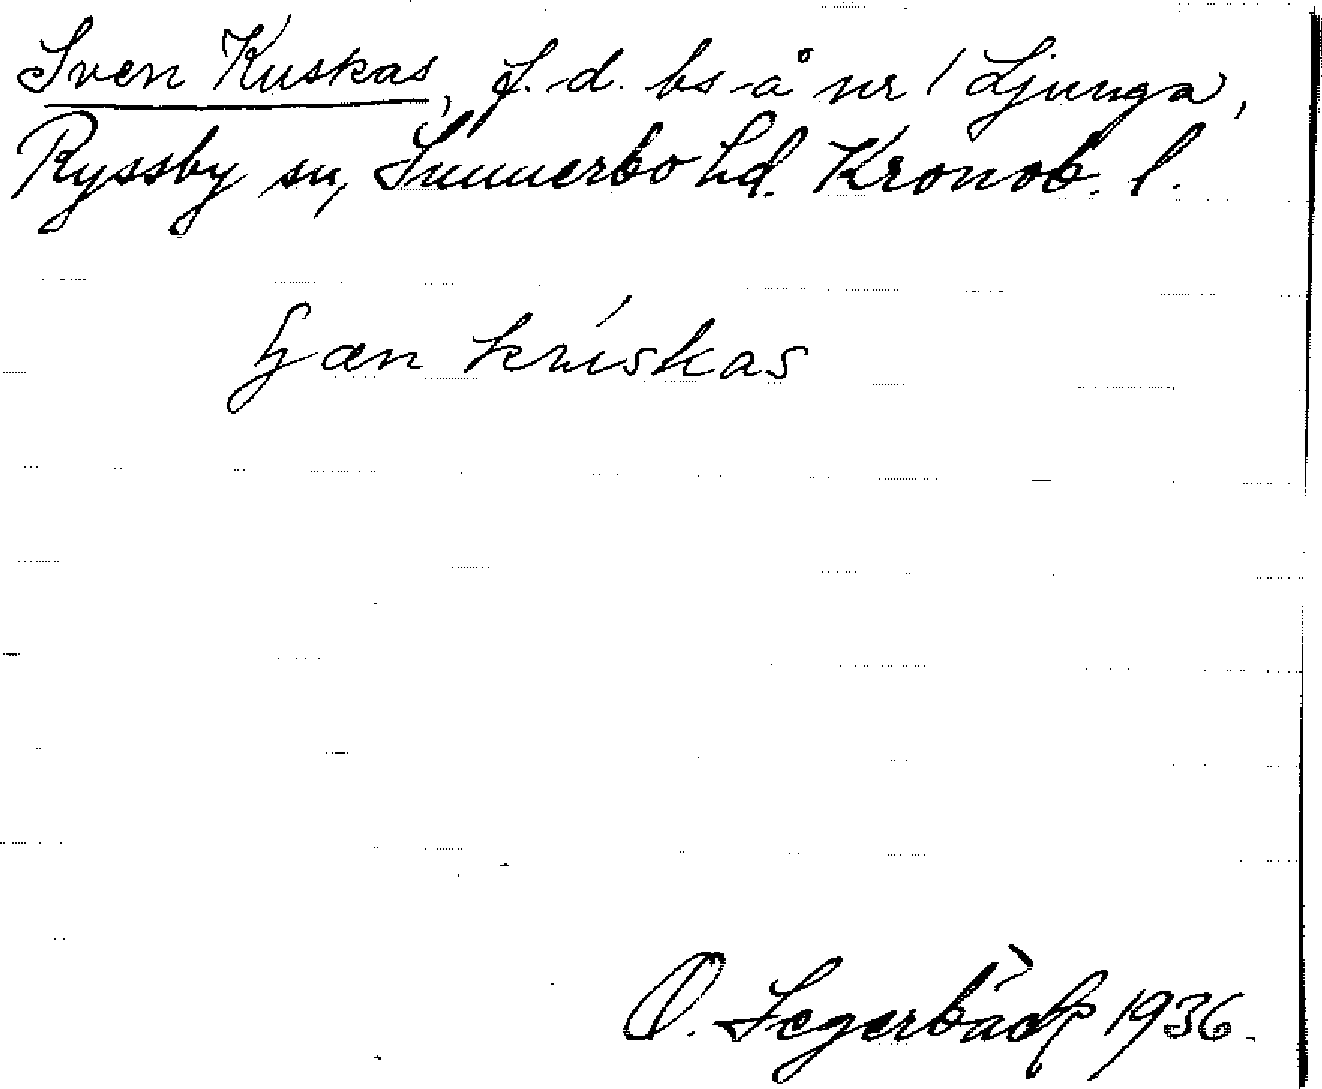 Sven Kuskas, f.d. bs-å nr 1 Ljunga,
Ryssby sn, Sunnerbo hd. Kronob. l.
kuskas
O. Segerbäck 1936.